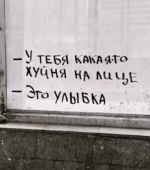 - У ТЕБЯ КАКАЯ-ТО
ХУЙНЯ НА ЛИЦЕ
- Это УЛЫБКА